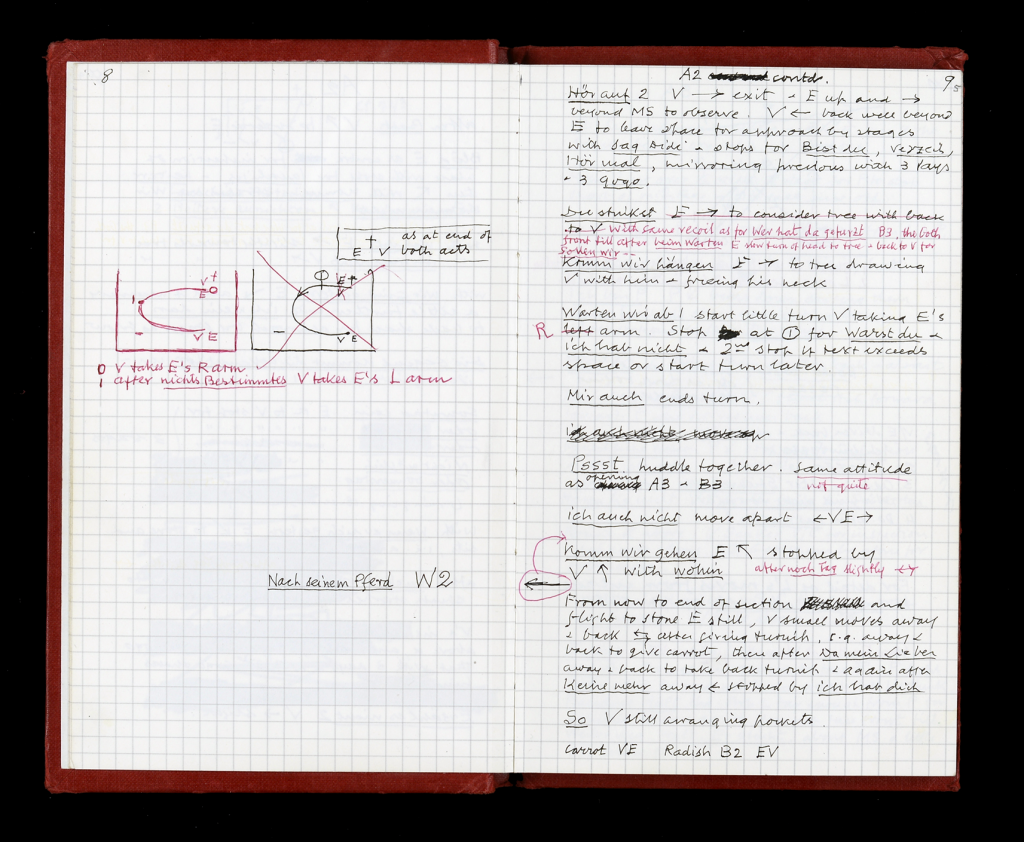 8
E † V as at end of
both acts
V †
E O
1
V E
1
E
V
V E
O V takes E's R arm
1 after nichts Bestimmtes V takes E's L arm
Nach seinem Pferd W2
9
A2 contd.
Hör auf 2 V → exit + E up and →
beyond MS to observe. V ← back well beyond
E to leave space for approach by stages
with Sag Didi + stops for Bist du, verzeih,
Hör mal, mirroring previous with 3 Kays
+ 3 Gogo.
Du strikst E → to consider tree with back
to V with same recoil as for Wer hat da gefurzt B3, the both
front till after beim Warten E slow turn of head to tree + back to V for
Sollen wir --
Komm wir hängen E → to tree drawing
V with him + freeing his neck
Warten wir ab 1 start little turn V taking E's
R left arm. Stop at 1 for Warst du +
ich hab nicht + 2nd stop if text exceeds
space or start turn later.
Mir auch ends turn.
Pssst huddle together. Same attitude
as opening A3 + B3. not quite
ich auch nicht move apart ← VE →
Komm wir gehen E ↖ stopped by
V ↑ with wohin after noch Tag slightly ↔
From now to end of section and
flight to stone E still, V small moves away
+ back ⇆ after giving turnip, e.g. away +
back to give carrot, then after Da mein Lieber
away + back to take back turnip + again after
Keine mehr away + stopped by ich hab dich
So V still arranging pockets.
Carrot VE Radish B2 EV